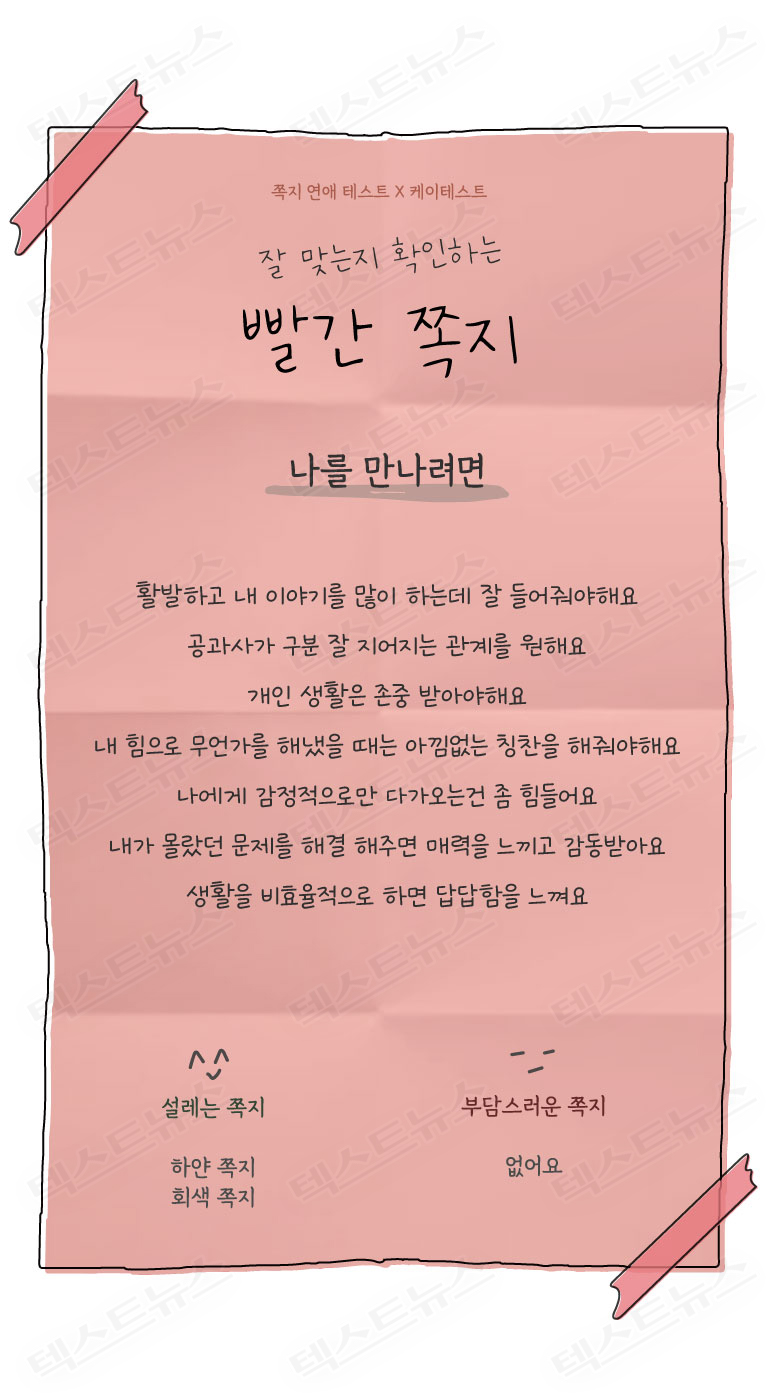 쪽지 연애 테스트 X 케이테스트
잘 맞는지 확인하는
빨간 쪽지
나를 만나려면
활발하고 내 이야기를 많이 하는데 잘 들어줘야해요
공과사가 구분 잘 지어지는 관계를 원해요
개인 생활은 존중 받아야해요
내 힘으로 무언가를 해냈을 때는 아낌없는 칭찬을 해줘야해요
나에게 감정적으로만 다가오는건 좀 힘들어요
내가 몰랐던 문제를 해결 해주면 매력을 느끼고 감동받아요
생활을 비효율적으로 하면 답답함을 느껴요
설레는 쪽지
하얀 쪽지
회색 쪽지
부담스러운 쪽지
없어요
텍스트뉴스